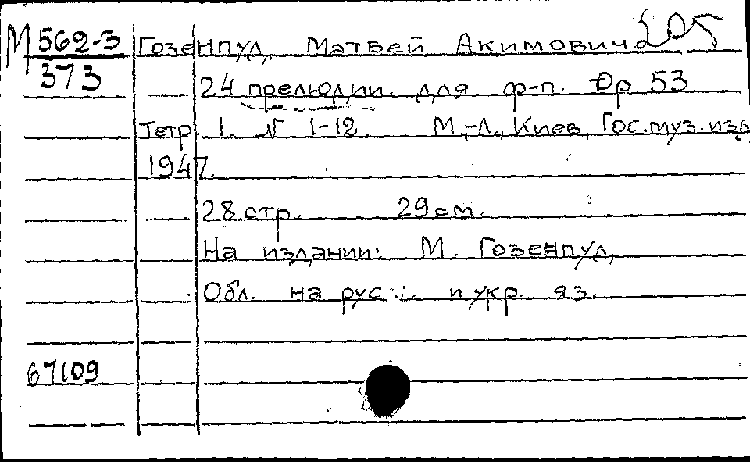 М 562-3 Гозенпуд, Матвей Акимович 205
373 24 прелюдии для ф-п. Op 53
Тетр. 1. N 1-12. М.-Л., Киев, Гос. муз. изд
1947.
28 стр. 29 см.
На издании: М. Гозенпуд,
Обл. на рус. и укр. яз.
67109